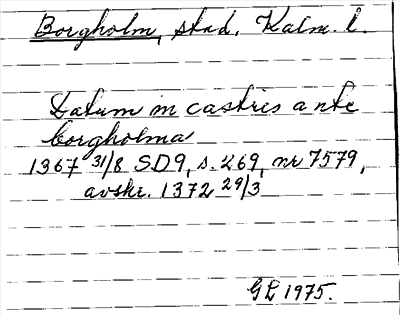 Borgholm, stad, Kalm. l.
Datum in castris ante
borgholma
1367 31/8 SD9, s. 269, nr 7579,
avskr. 1372 29/3
GL 1975.